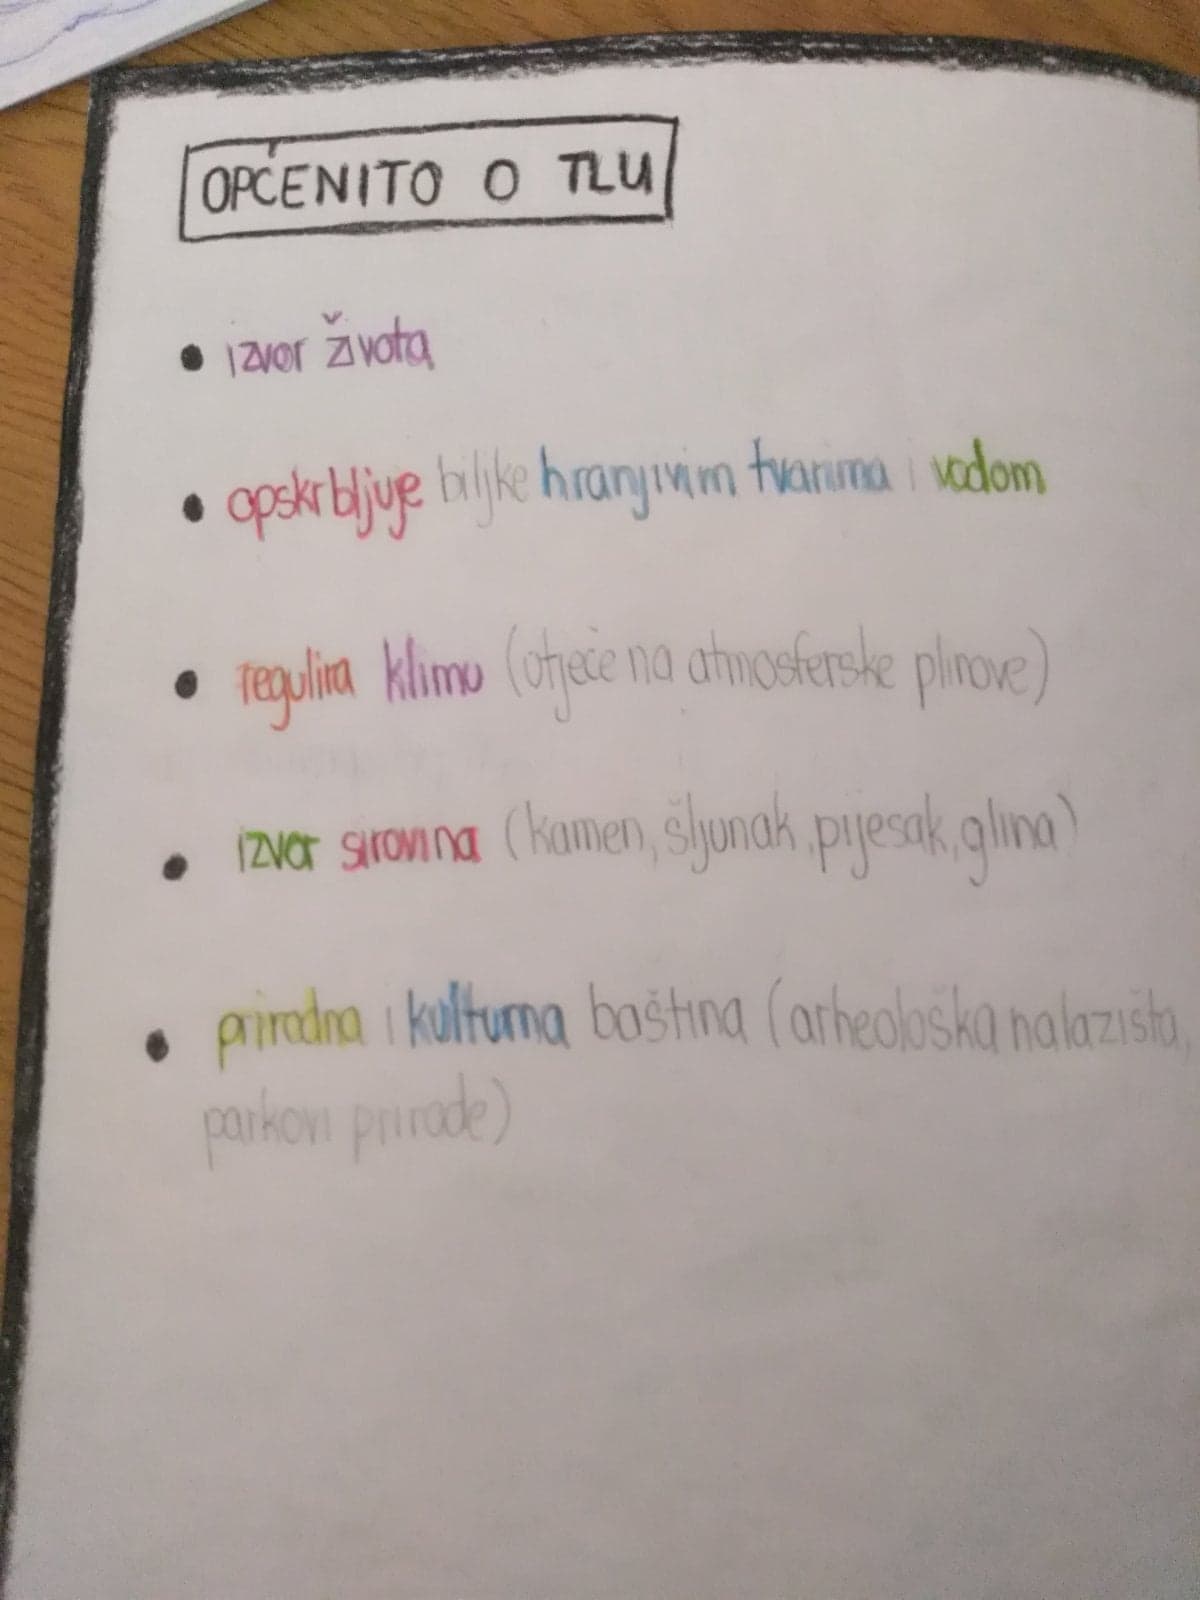 OPĆENITO O TLU
• izvor života
• opskrbljuje biljke hranjivim tvarima i vodom
• regulira klimu (otječe na atmosferske plinove)
• izvor sirovina (kamen, šljunak, pijesak, glina)
• prirodna i kulturna baština (arheološka nalazišta,
parkovi prirode)